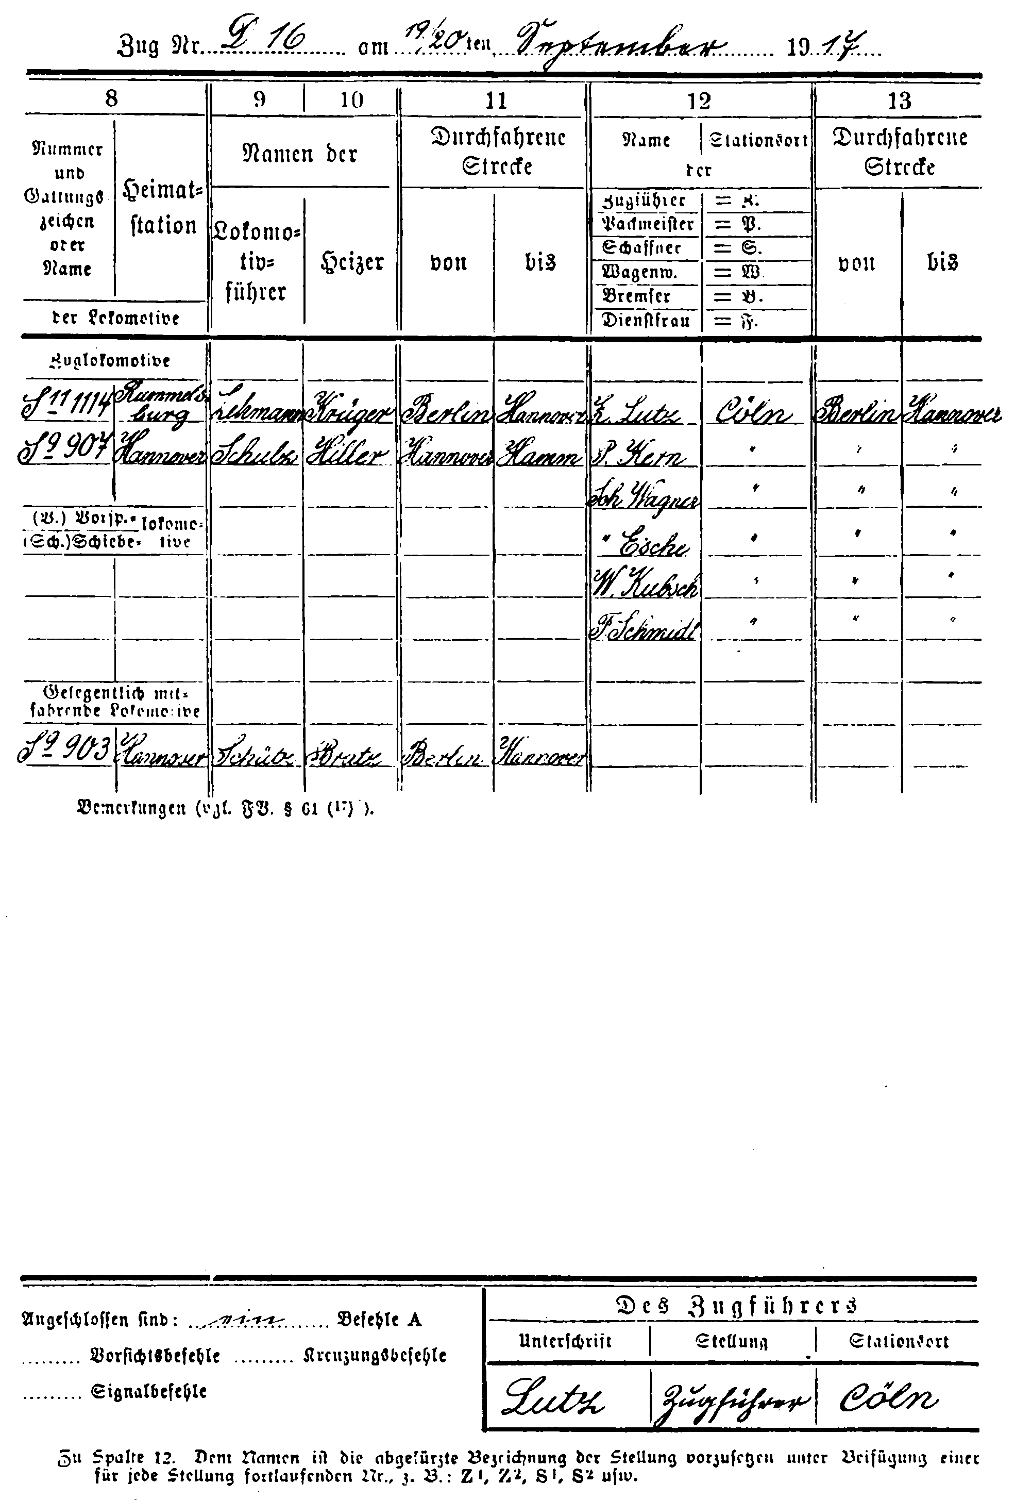 Zug Nr. D 16 am 19/20ten September 1917
8 9 10 11 12 13
Nummer und Gattungszeichen oder Name
Heimatstation
der Lokomotive
Namen der
Lokomotivführer
Heizer
Durchfahrene Strecke
von bis
Name Stationsort
der
Zugführer = Z.
Packmeister = P.
Schaffner = S.
Wagenw. = W.
Bremser = B.
Dienstfrau = F.
Durchfahrene Strecke
von bis
Zuglokomotive
S 11 1114 Rummelsburg Lehmann Krüger Berlin Hannover Z. Lutz Cöln Berlin Hannover
S 9 907 Hannover Schulz Hiller Hannover Hamm P. Kern " " "
Sch Wagner " " "
(V.) Vorsp.- lokomo-
(Sch.) Schiebe- tive
" Esche " " "
W. Kubsch " " "
F. Schmidt " " "
Gelegentlich mit-
fahrende Lokomotive
S 9 903 Hannover Schütz Bratz Berlin Hannover
Bemerkungen (vgl. FV. § 61 (17) ).
Angeschlossen sind: ein Befehle A
Vorsichtsbefehle Kreuzungsbefehle
Signalbefehle
Des Zugführers
Unterschrift Stellung Stationsort
Lutz Zugführer Cöln
Zu Spalte 12. Dem Namen ist die abgekürzte Bezeichnung der Stellung vorzusetzen unter Beifügung einer
für jede Stellung fortlaufenden Nr., z. B.: Z1, Z2, S1, S2 usw.